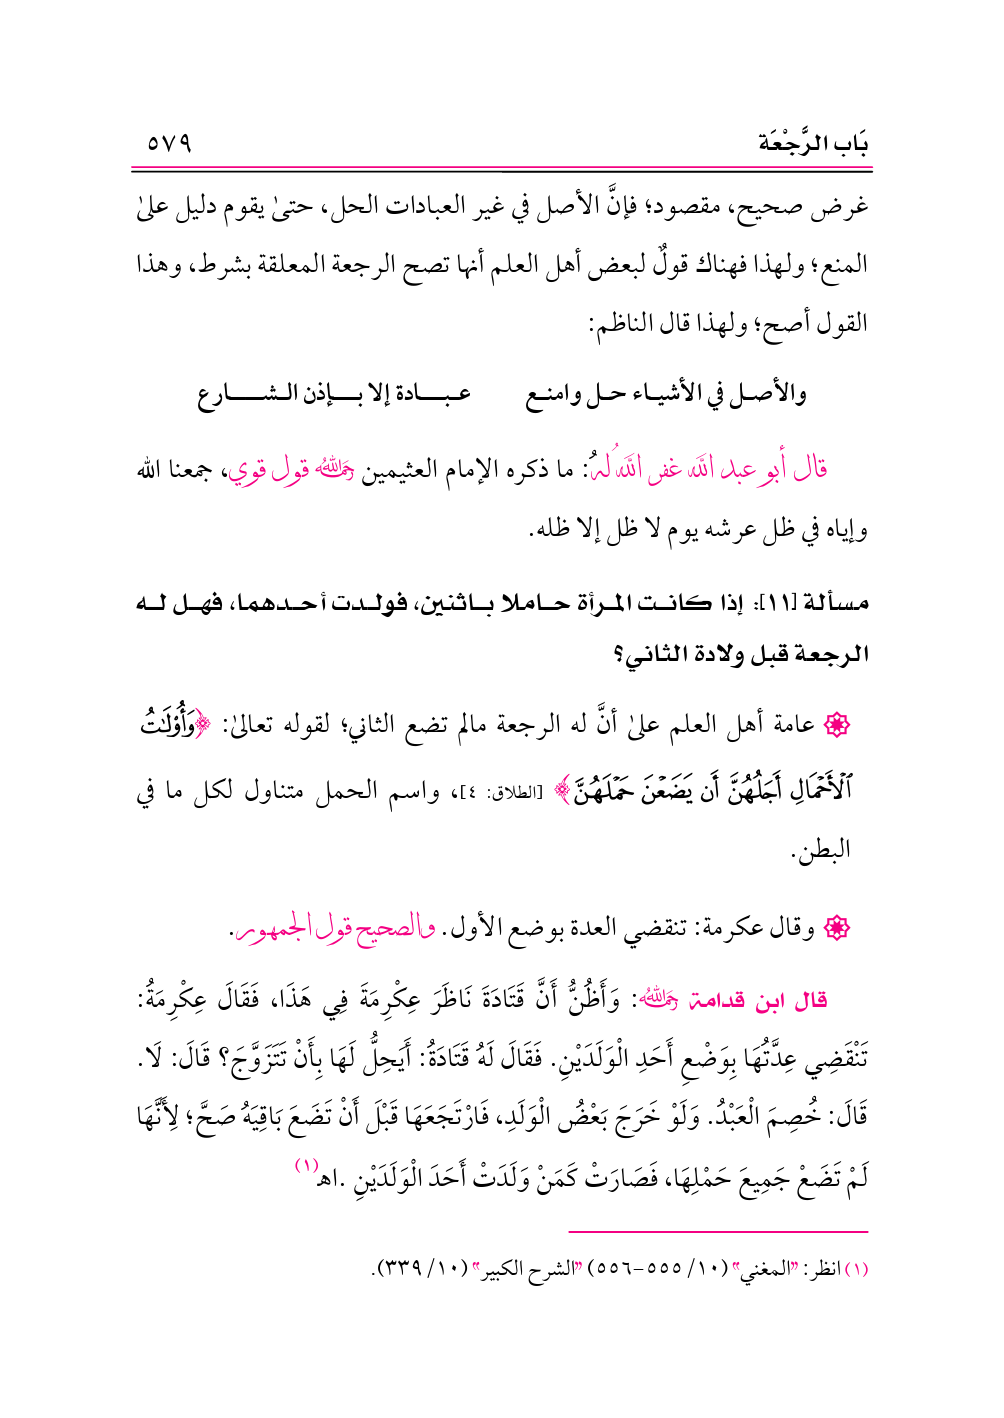 بَاب الرَّجْعَة ٥٧٩
غرض صحيح، مقصود؛ فإنَّ الأصل في غير العبادات الحل، حتىٰ يقوم دليل علىٰ
المنع؛ ولهذا فهناك قولٌ لبعض أهل العلم أنها تصح الرجعة المعلقة بشرط، وهذا
القول أصح؛ ولهذا قال الناظم:
والأصل في الأشياء حل وامنع عبادة إلا بإذن الشارع
قال أبو عبد الله غفر الله لهُ: ما ذكره الإمام العثيمين رحمه الله قول قوي، جمعنا الله
وإياه في ظل عرشه يوم لا ظل إلا ظله.
مسألة [١١]: إذا كانت المرأة حاملا باثنين، فولدت أحدهما، فهل له
الرجعة قبل ولادة الثاني؟
عامة أهل العلم علىٰ أنَّ له الرجعة مالم تضع الثاني؛ لقوله تعالىٰ: ﴿وَأُو۟لَٰتُ
ٱلْأَحْمَالِ أَجَلُهُنَّ أَن يَضَعْنَ حَمْلَهُنَّ﴾ [الطلاق: ٤]، واسم الحمل متناول لكل ما في
البطن.
وقال عكرمة: تنقضي العدة بوضع الأول. والصحيح قول الجمهور.
قال ابن قدامة رحمه الله: وَأَظُنُّ أَنَّ قَتَادَةَ نَاظَرَ عِكْرِمَةَ فِي هَذَا، فَقَالَ عِكْرِمَةُ:
تَنْقَضِي عِدَّتُهَا بِوَضْعِ أَحَدِ الْوَلَدَيْنِ. فَقَالَ لَهُ قَتَادَةُ: أَيَحِلُّ لَهَا بِأَنْ تَتَزَوَّجَ؟ قَالَ: لَا.
قَالَ: خُصِمَ الْعَبْدُ. وَلَوْ خَرَجَ بَعْضُ الْوَلَدِ، فَارْتَجَعَهَا قَبْلَ أَنْ تَضَعَ بَاقِيَهُ صَحَّ؛ لِأَنَّهَا
لَمْ تَضَعْ جَمِيعَ حَمْلِهَا، فَصَارَتْ كَمَنْ وَلَدَتْ أَحَدَ الْوَلَدَيْنِ .اهـ(١)
(١) انظر: "المغني" (١٠/ ٥٥٥-٥٥٦) "الشرح الكبير" (١٠/ ٣٣٩).